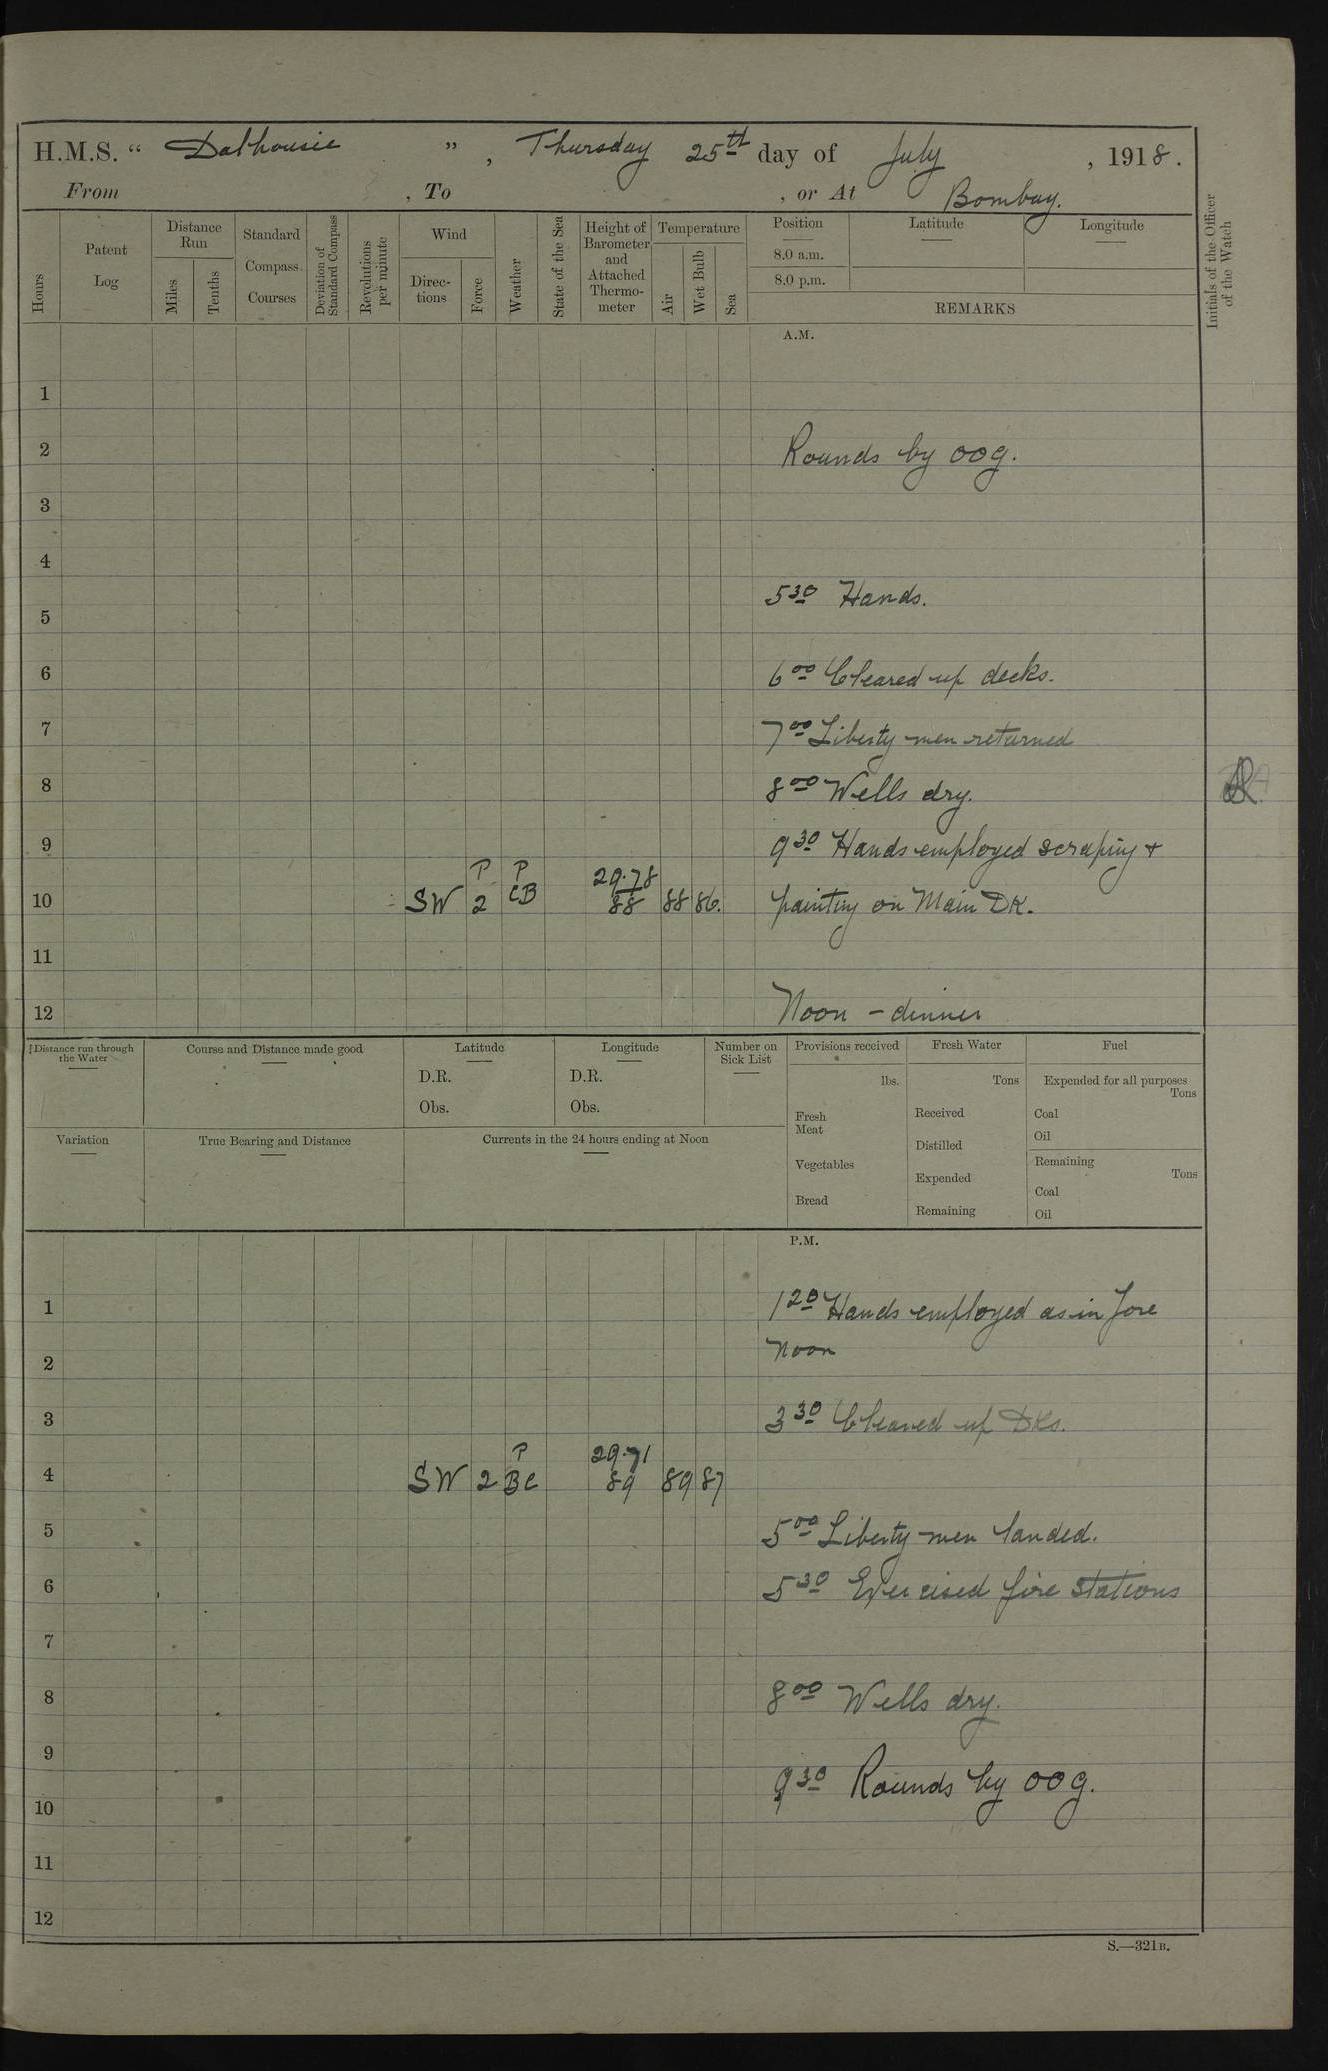 H.M.S. “ Dalhousie ” , Thursday 25th day of July , 1918.
From , To , or At Bombay.
Hours
Patent Log
Distance Run
Miles
Tenths
Standard Compass Courses
Deviation of Standard Compass
Revolutions per minute
Wind
Direc-tions
Force
Weather
State of the Sea
Height of Barometer and Attached Thermo-meter
Temperature
Air
Wet Bulb
Sea
Position
8.0 a.m.
8.0 p.m.
Latitude
Longitude
REMARKS
Initials of the Officer of the Watch
A.M.
1
2 Rounds by OOG.
3
4
5 30 Hands.
5
6 6 00 Cleared up decks.
7 7 00 Liberty men returned
8 8 00 Wells dry.
9 9 30 Hands employed scraping +
P P 29.78
10 SW 2 CB 88 88 86. painting on Main DK.
11
12 Noon - dinner
Distance run through the Water
Course and Distance made good
Latitude
D.R.
Obs.
Longitude
D.R.
Obs.
Number on Sick List
Provisions received
lbs.
Fresh Meat
Vegetables
Bread
Fresh Water
Tons
Received
Distilled
Expended
Remaining
Fuel
Expended for all purposes
Tons
Coal
Oil
Remaining
Tons
Coal
Oil
Variation
True Bearing and Distance
Currents in the 24 hours ending at Noon
P.M.
1 1 20 Hands employed as in fore
2 noon
3 3 30 Cleared up DKs.
P 29.71
4 SW 2 BC 89 89 87
5 5 00 Liberty men landed.
6 5 30 Exercised fire stations
7
8 8 00 Wells dry.
9
9 30 Rounds by OOG.
10
11
12
S.—321B.